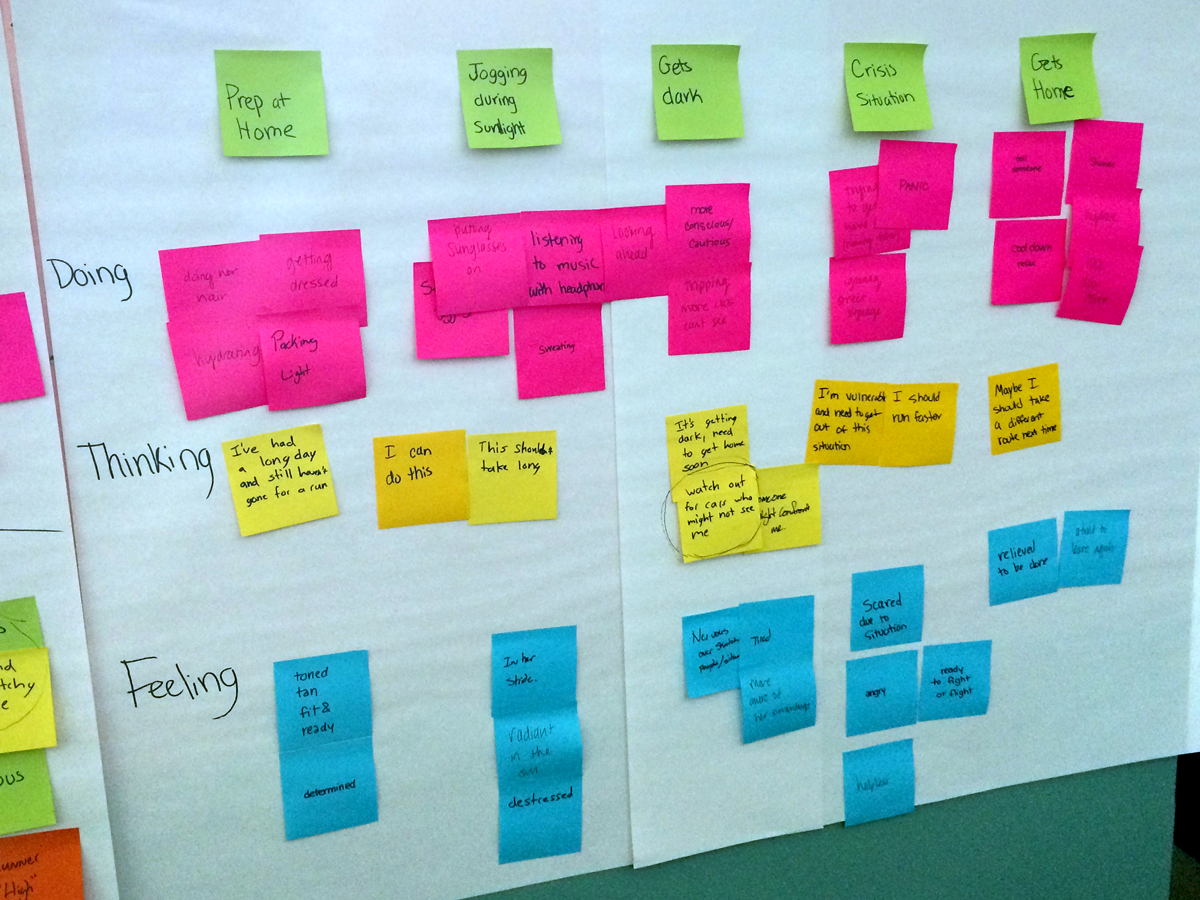 Prep at
Home
Jogging
during
Sunlight
Gets
dark
Crisis
Situation
Gets
Home
Doing
doing her
hair
getting
dressed
hydrating
Packing
Light
putting
Sunglasses
on
listening
to music
with headphon
Looking
ahead
Sweating
more
conscious/
Cautious
tripping
more
cant see
trying
to get
PANIC
someone
Cool down
relax
Shower
Thinking
I've had
a long day
and still haven't
gone for a run
I can
do this
This shouldn't
take long
It's getting
dark, need
to get home
soon
watch out
for cars who
might not see
me
me.
I'm vulnerable
and need to get
out of this
situation
I should
run faster
Maybe I
should take
a different
route next time
Feeling
toned
tan
fit &
ready
determined
In her
Stride.
radiant
in the
sun
destressed
Nervous
over
Tired
More
aware of
her surroundings
Scared
due to
Situation
angry
ready
to fight
or flight
helpless
relieved
to be done
afraid to
leave again
nd
tchy
e
ous
unner
"High"